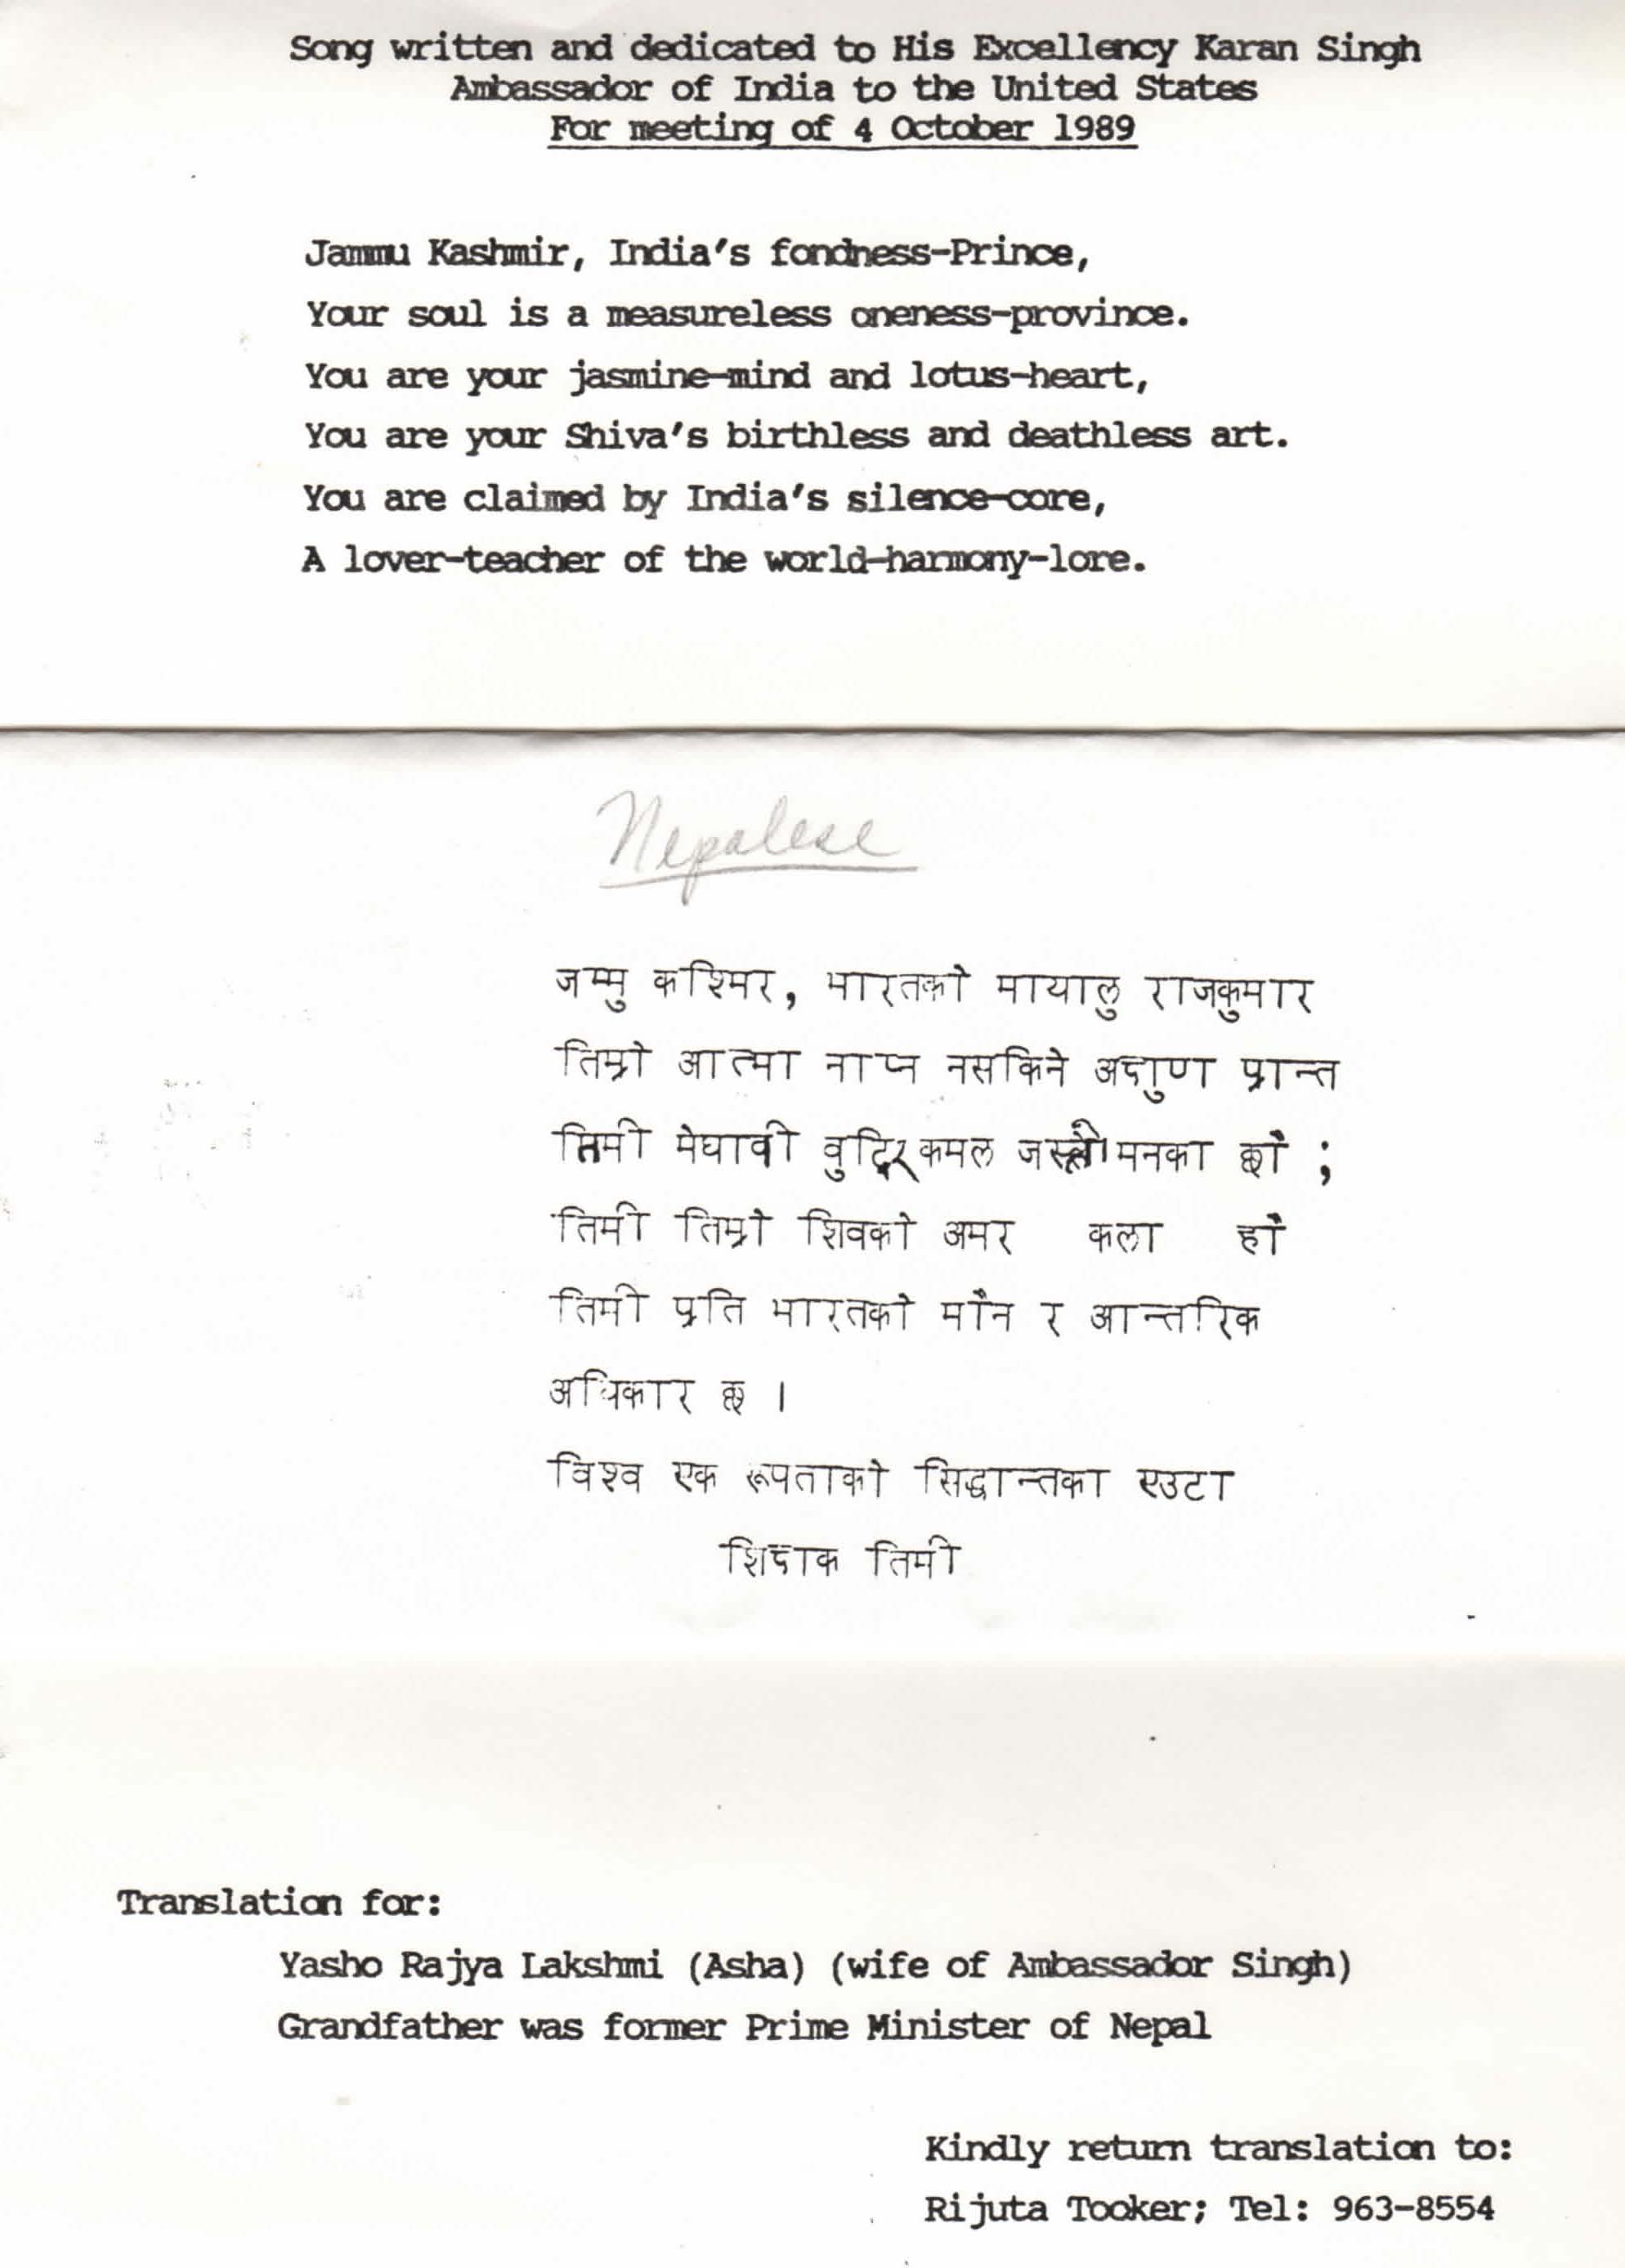 Song written and dedicated to His Excellency Karan Singh
Ambassador of India to the United States
For meeting of 4 October 1989
Jammu Kashmir, India's fondness-Prince,
Your soul is a measureless oneness-province.
You are your jasmine-mind and lotus-heart,
You are your Shiva's birthless and deathless art.
You are claimed by India's silence-core,
A lover-teacher of the world-harmony-lore.
Nepalese
जम्मु कश्मिर, भारतको मायालु राजकुमार
तिम्रो आत्मा नाप्न नसकिने अक्षुण प्रान्त
तिमी मेघावी वुद्धि र कमल जस्तो मनका छौ ;
तिमी तिम्रो शिवको अमर कला हौ
तिमी प्रति भारतको मौन र आन्तरिक
अधिकार छ ।
विश्व एक रूपताको सिद्धान्तका एउटा
शिक्षक तिमी
Translation for:
Yasho Rajya Lakshmi (Asha) (wife of Ambassador Singh)
Grandfather was former Prime Minister of Nepal
Kindly return translation to:
Rijuta Tooker; Tel: 963-8554